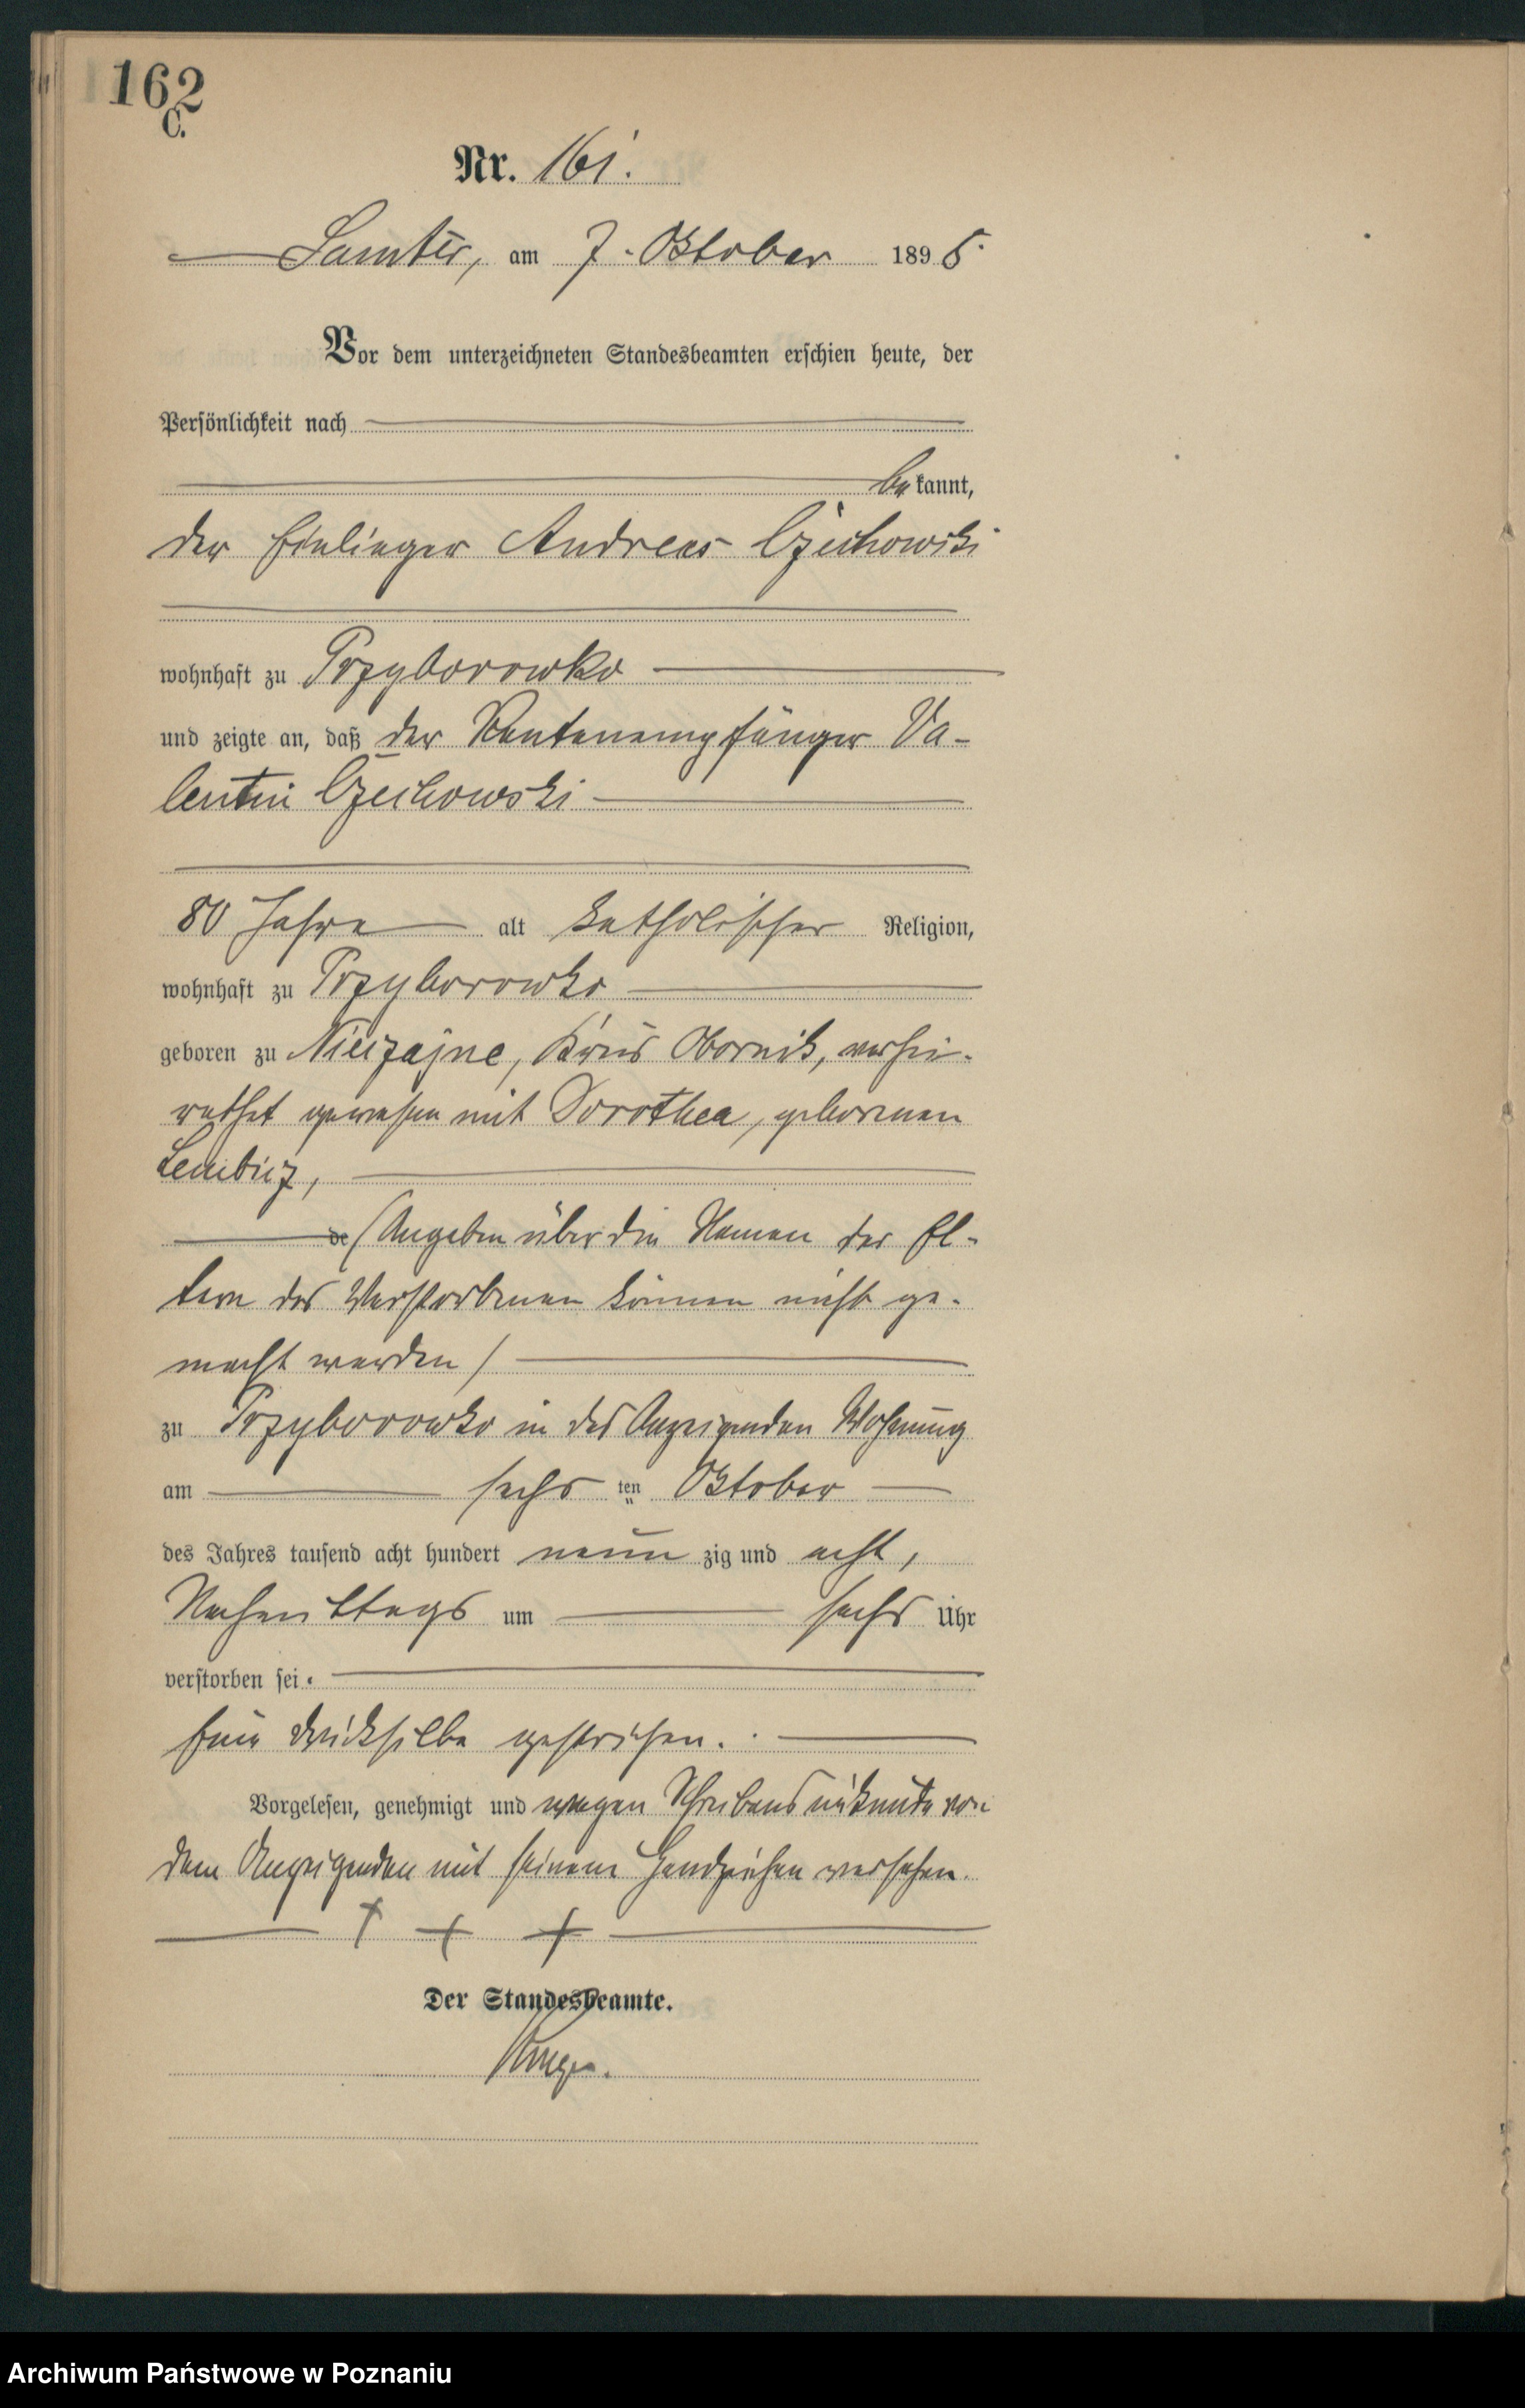 162
C.
Nr. 161.
Samter, am 7. Oktober 1898.
Vor dem unterzeichneten Standesbeamten erschien heute, der
Persönlichkeit nach
bekannt,
der Einlieger Andreas Czechowski
wohnhaft zu Przyborowko
und zeigte an, daß der Rentenempfänger Va-
lentin Czechowski
80 Jahre alt katholischer Religion,
wohnhaft zu Przyborowko
geboren zu Nieczajne, Kreis Obornik, verhei-
rathet gewesen mit Dorothea, geborenen
Lembicz,
de (Angaben über die Namen der El-
tern des Verstorbenen können nicht ge-
macht werden)
zu Przyborowko in des Anzeigenden Wohnung
am sechsten Oktober
des Jahres tausend acht hundert neunzig und acht,
Nachmittags um sechs Uhr
verstorben sei.
Eine Drucksilbe gestrichen.
Vorgelesen, genehmigt und wegen Schreibensunkunde von
dem Anzeigenden mit seinem Handzeichen versehen.
+ + +
Der Standesbeamte.
Archiwum Państwowe w Poznaniu